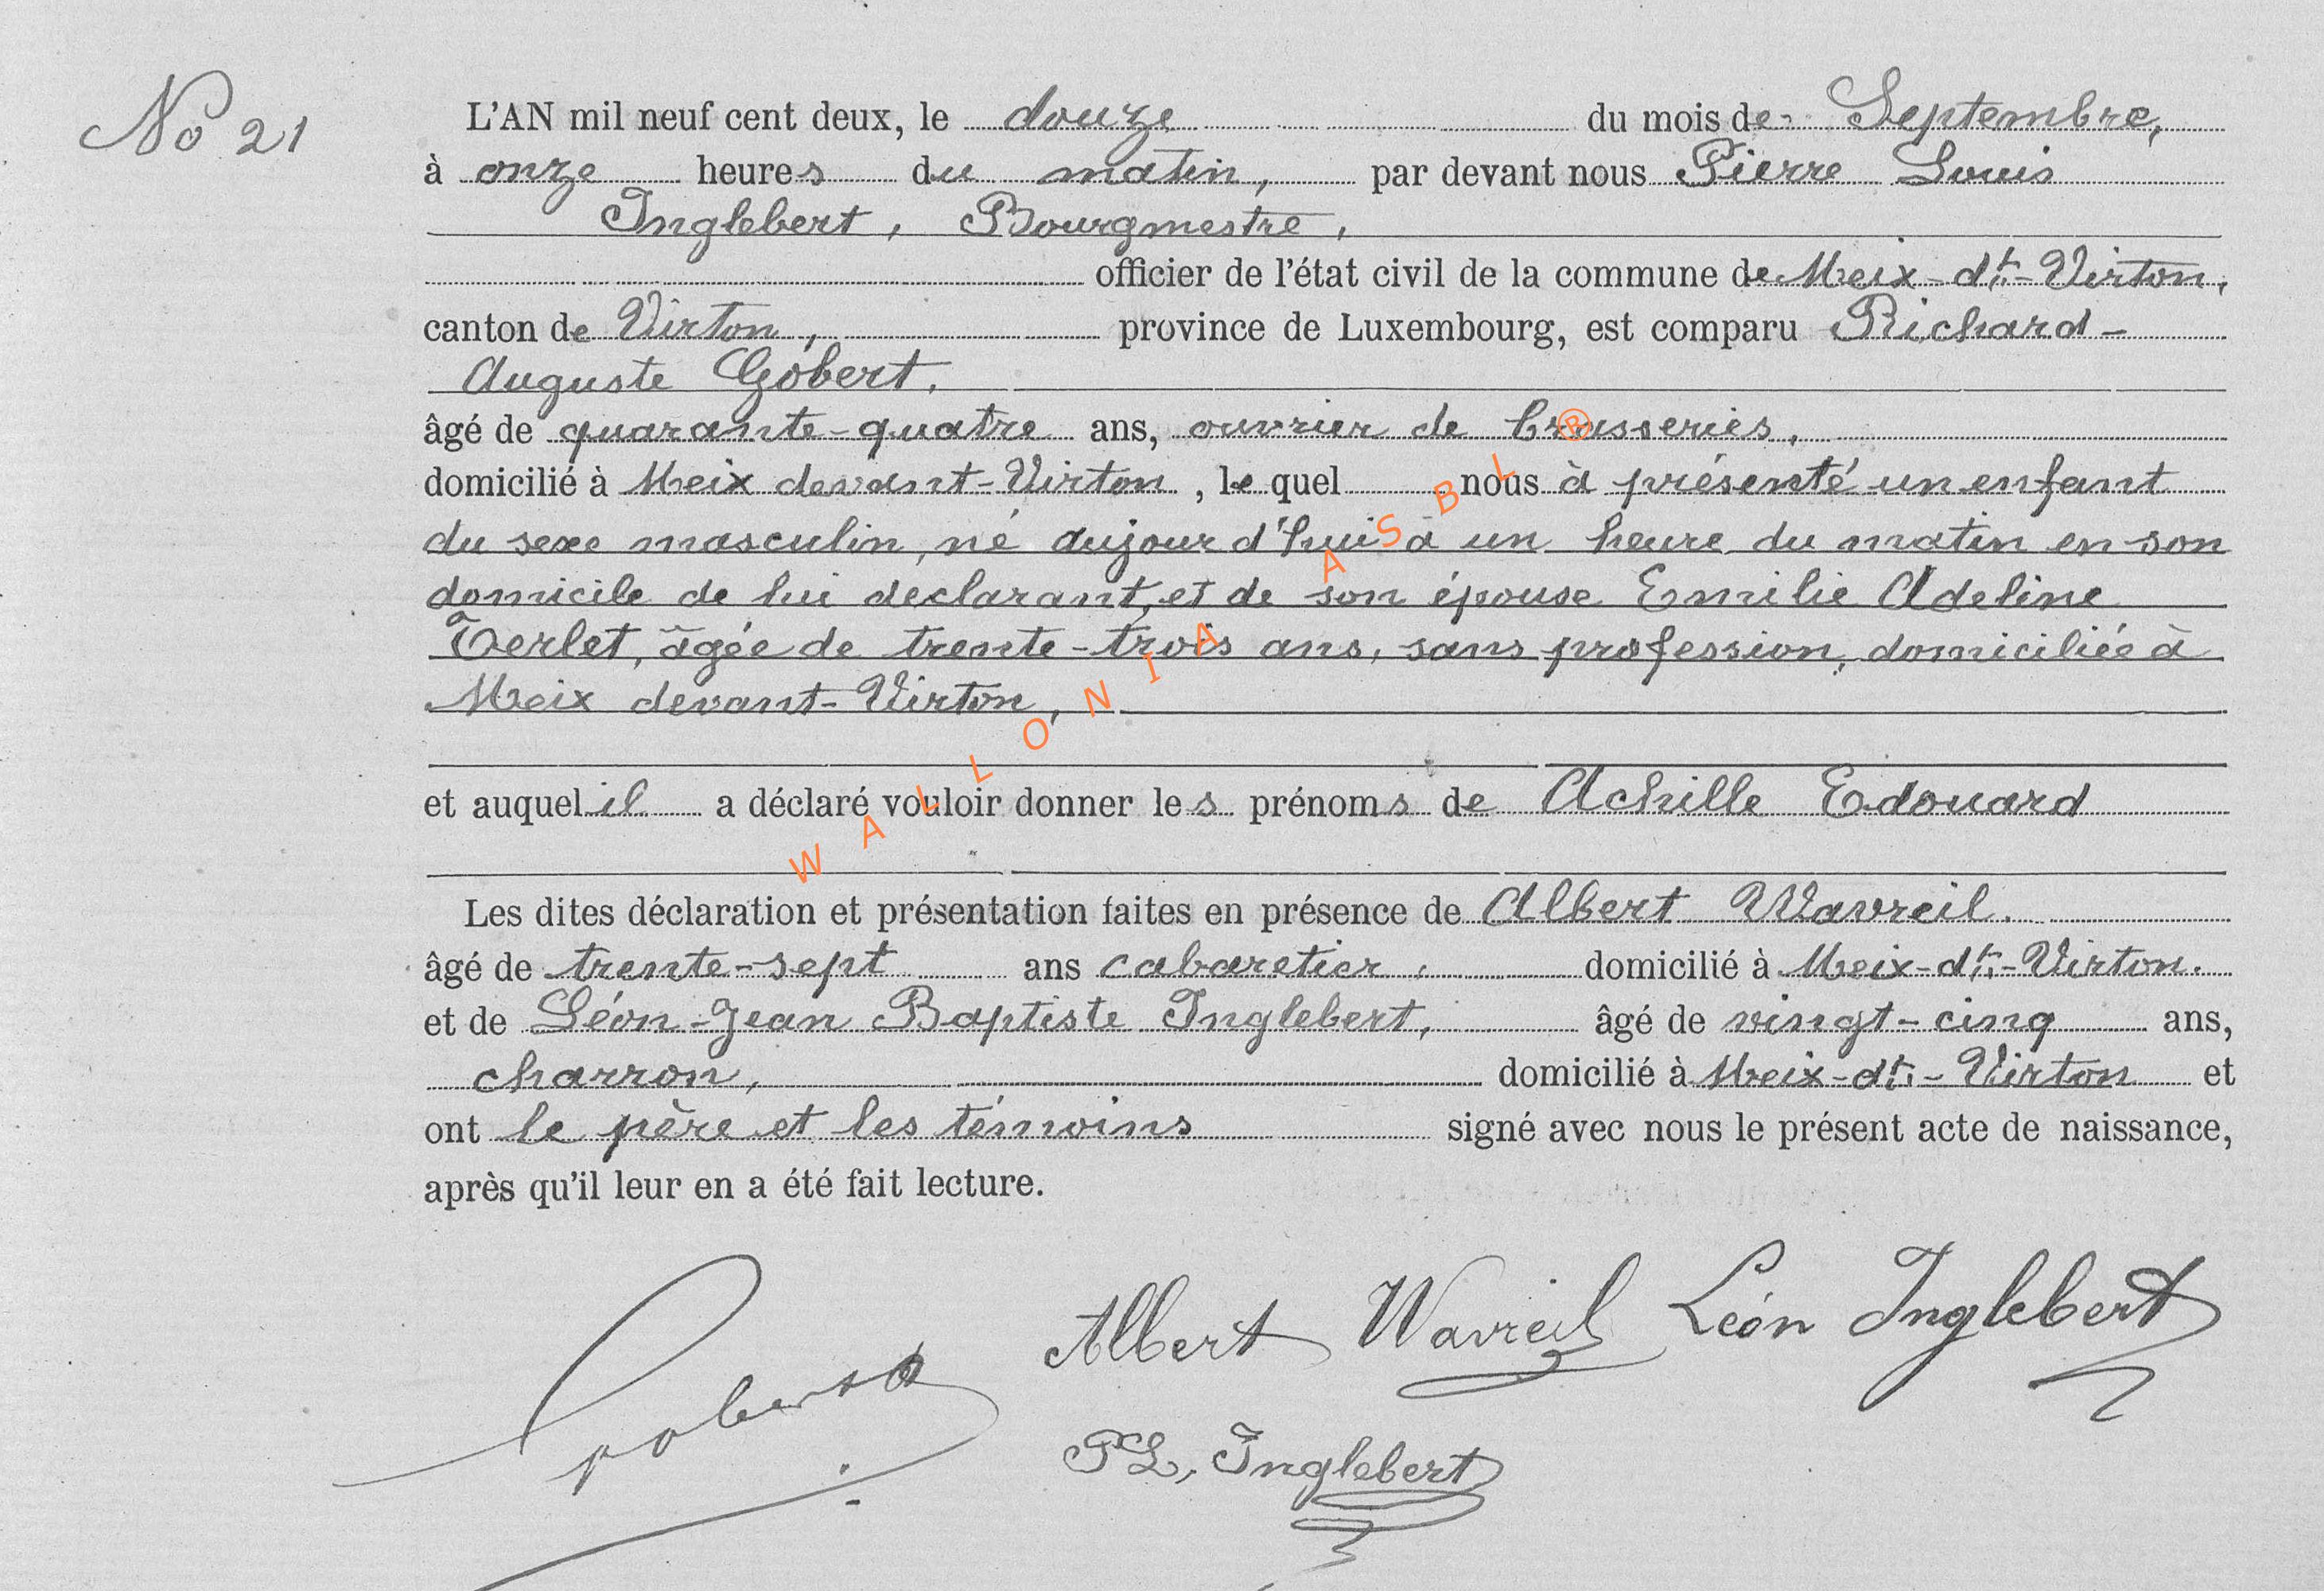 No 21
L'AN mil neuf cent deux, le douze du mois de Septembre,
à onze heures du matin, par devant nous Pierre Louis
Inglebert, Bourgmestre,
officier de l'état civil de la commune de Meix-dt-Virton,
canton de Virton, province de Luxembourg, est comparu Richard-
Auguste Gobert,
âgé de quarante-quatre ans, ouvrier de brasseries,
domicilié à Meix devant-Virton, le quel nous à présenté un enfant
du sexe masculin, né aujourd'hui à un heure du matin en son
domicile de lui declarant, et de son épouse Emilie Adeline
Terlet, âgée de trente-trois ans, sans profession, domiciliée à
Meix devant-Virton,
et auquel il a déclaré vouloir donner les prénoms de Achille Edouard
Les dites déclaration et présentation faites en présence de Albert Wavreil.
âgé de trente-sept ans cabaretier, domicilié à Meix-dt-Virton.
et de Léon-Jean Baptiste Inglebert, âgé de vingt-cinq ans,
charron, domicilié à Meix-dt-Virton et
ont le père et les témoins signé avec nous le présent acte de naissance,
après qu'il leur en a été fait lecture.
Albert Wavreil Léon Inglebert
PL, Inglebert
WALLONIA ASBL ®